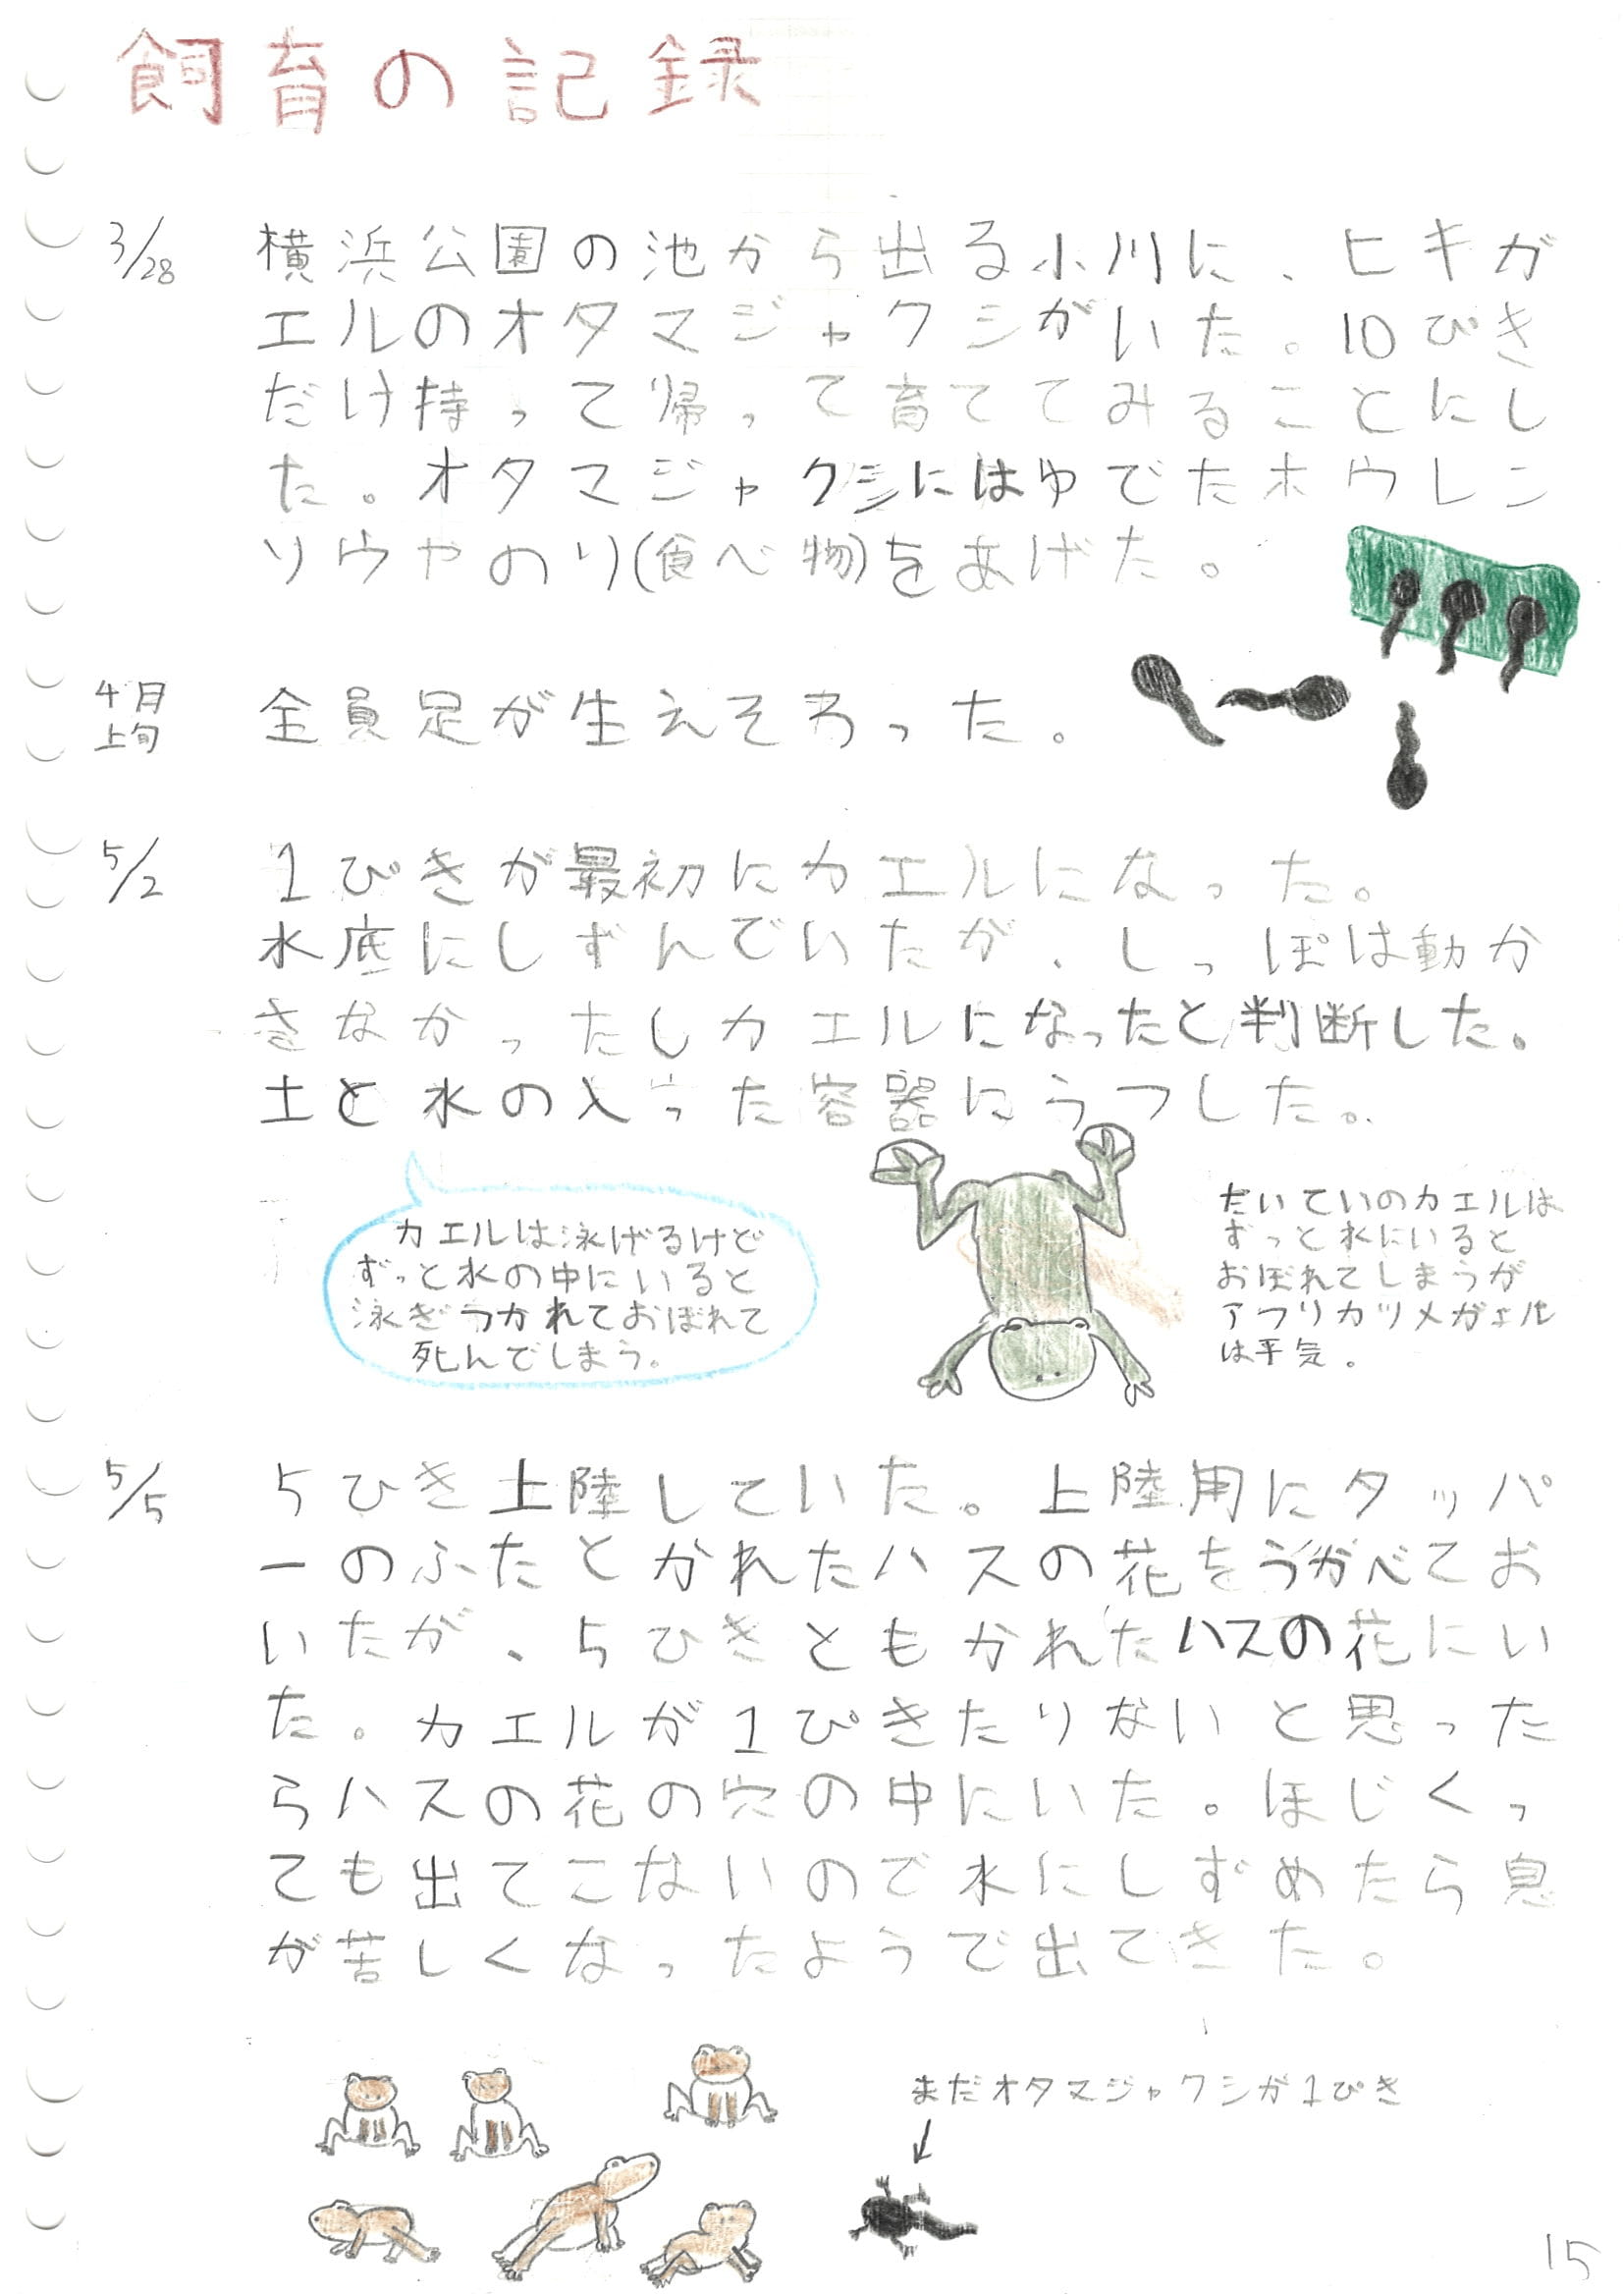 飼育の記録
3/28
横浜公園の池から出る小川に、ヒキガ
エルのオタマジャクシがいた。10ぴき
だけ持って帰って育ててみることにし
た。オタマジャクシにはゆでたホウレン
ソウやのり(食べ物)をあげた。
4月
上旬
全員足が生えそろった。
5/2
1ぴきが最初にカエルになった。
水底にしずんでいたが、しっぽは動か
さなかったしカエルになったと判断した。
土と水の入った容器にうつした。
カエルは泳げるけど
ずっと水の中にいると
泳ぎつかれておぼれて
死んでしまう。
たいていのカエルは
ずっと水にいると
おぼれてしまうが
アフリカツメガエル
は平気。
5/5
5ひき上陸していた。上陸用にタッパ
ーのふたとかれたハスの花をうかべてお
いたが、5ひきともかれたハスの花にい
た。カエルが1ぴきたりないと思った
らハスの花の穴の中にいた。ほじくっ
ても出てこないので水にしずめたら息
が苦しくなったようで出てきた。
まだオタマジャクシが1ぴき
15